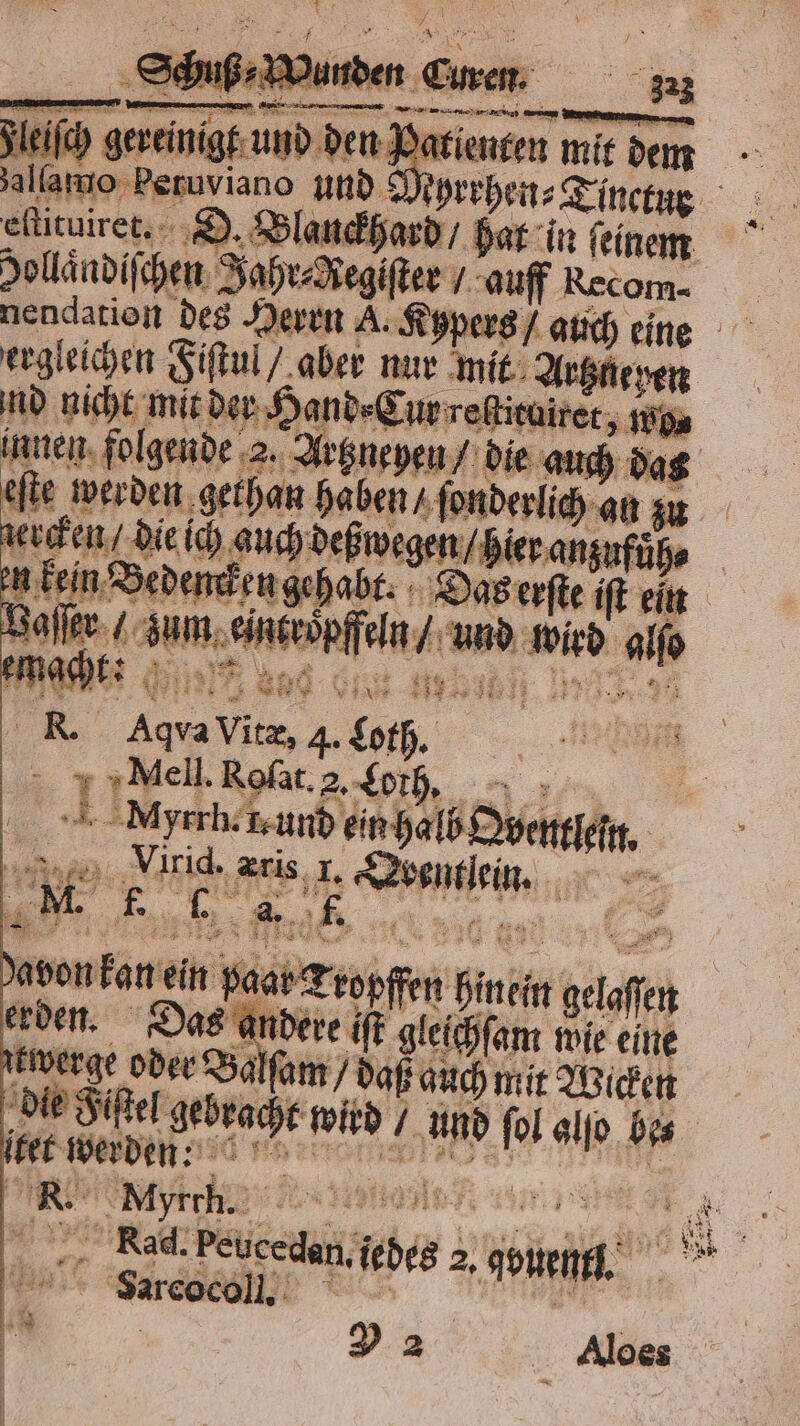 Schuß-Wunden Curen. 323
Fleiſch gereinigt und den Patienten mit dem
alſamo Peruviano und Myrrhen-Tinctur
eſtituiret. D. Blanckhard / hat in ſeinem
Hollaͤndiſchen Jahr-Regiſter / auff Recom-
nendation des Herrn A. Kypers / auch eine
ergleichen Fiſtul / aber nur mit Artzneyen
nd nicht mit der Hand-Cur reſtituiret, wo-
innen folgende 2. Artzneyen / die auch das
eſte werden gethan haben / ſonderlich an zu
nercken / die ich auch deßwegen / hier anzufuͤh-
en kein Bedencken gehabt. Das erſte iſt ein
Waſſer / zum eintroͤpffeln / und wird alſo
emacht:
R. Aqva Vitæ, 4. Loth.
Mell. Roſat. 2. Loth.
Myrrh. 1. und ein halb Qventlein.
Virid. æris 1. Qventlein.
M. f. ſ. a. f.
Davon kan ein paar Tropffen hinein gelaſſen
erden. Das andere iſt gleichſam wie eine
atwerge oder Balſam / daß auch mit Wicken
die Fiſtel gebracht wird / und ſol alſo be-
itet werden:
R. Myrrh.
Rad. Peucedan. iedes 2. qvuentl.
Sarcocoll.
Y 2 Aloes